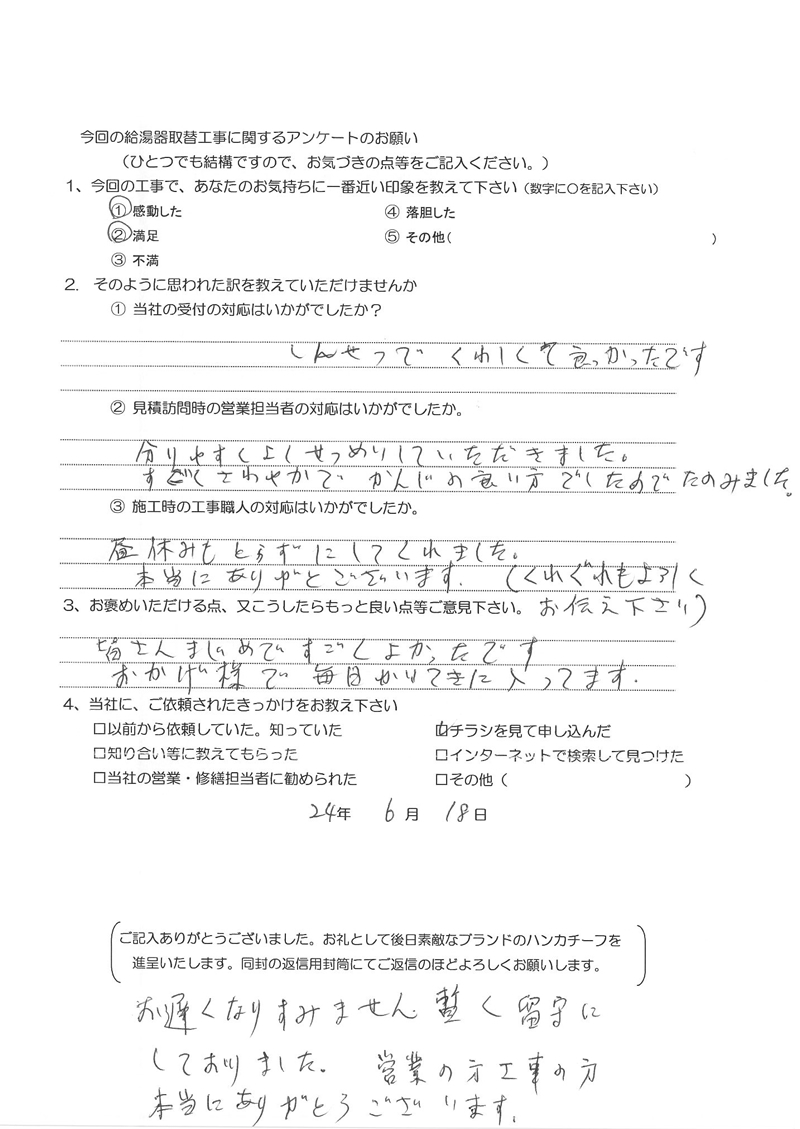 今回の給湯器取替工事に関するアンケートのお願い
（ひとつでも結構ですので、お気づきの点等をご記入ください。）
1、今回の工事で、あなたのお気持ちに一番近い印象を教えて下さい（数字に〇を記入下さい）
① 感動した ④ 落胆した
② 満足 ⑤ その他( )
③ 不満
2. そのように思われた訳を教えていただけませんか
① 当社の受付の対応はいかがでしたか？
しんせつで くわしくて 良っかったです
② 見積訪問時の営業担当者の対応はいかがでしたか。
分りやすくよくせつめりしていただきました。
すごくさわやかで かんじの良い方でしたのでたのみました。
③ 施工時の工事職人の対応はいかがでしたか。
昼休みもとらずにしてくれました。
本当にありがとございます. (くれぐれもよろしく
3、お褒めいただける点、又こうしたらもっと良い点等ご意見下さい。 お伝え下さい)
皆さんまじめですごくよかったです
おかげ様で 毎日かいてきに入ってます.
4、当社に、ご依頼されたきっかけをお教え下さい
□以前から依頼していた。知っていた ☑チラシを見て申し込んだ
□知り合い等に教えてもらった □インターネットで検索して見つけた
□当社の営業・修繕担当者に勧められた □その他（ ）
24年 6月 18日
ご記入ありがとうございました。お礼として後日素敵なブランドのハンカチーフを
進呈いたします。同封の返信用封筒にてご返信のほどよろしくお願いします。
お遅くなりすみません. 暫く留守に
しておりました。 営業の方工事の方
本当にありがとうございます.